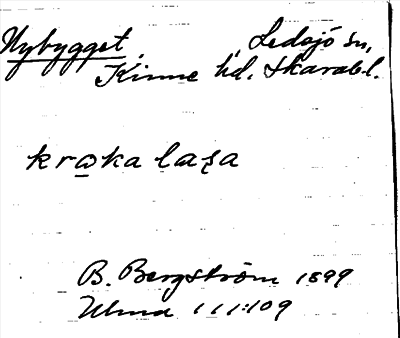 Nybygget, Ledsjö sn,
Kinne hd. Skarab.l.
krωka laʒa
B. Bergström 1899
Ulma 111:109